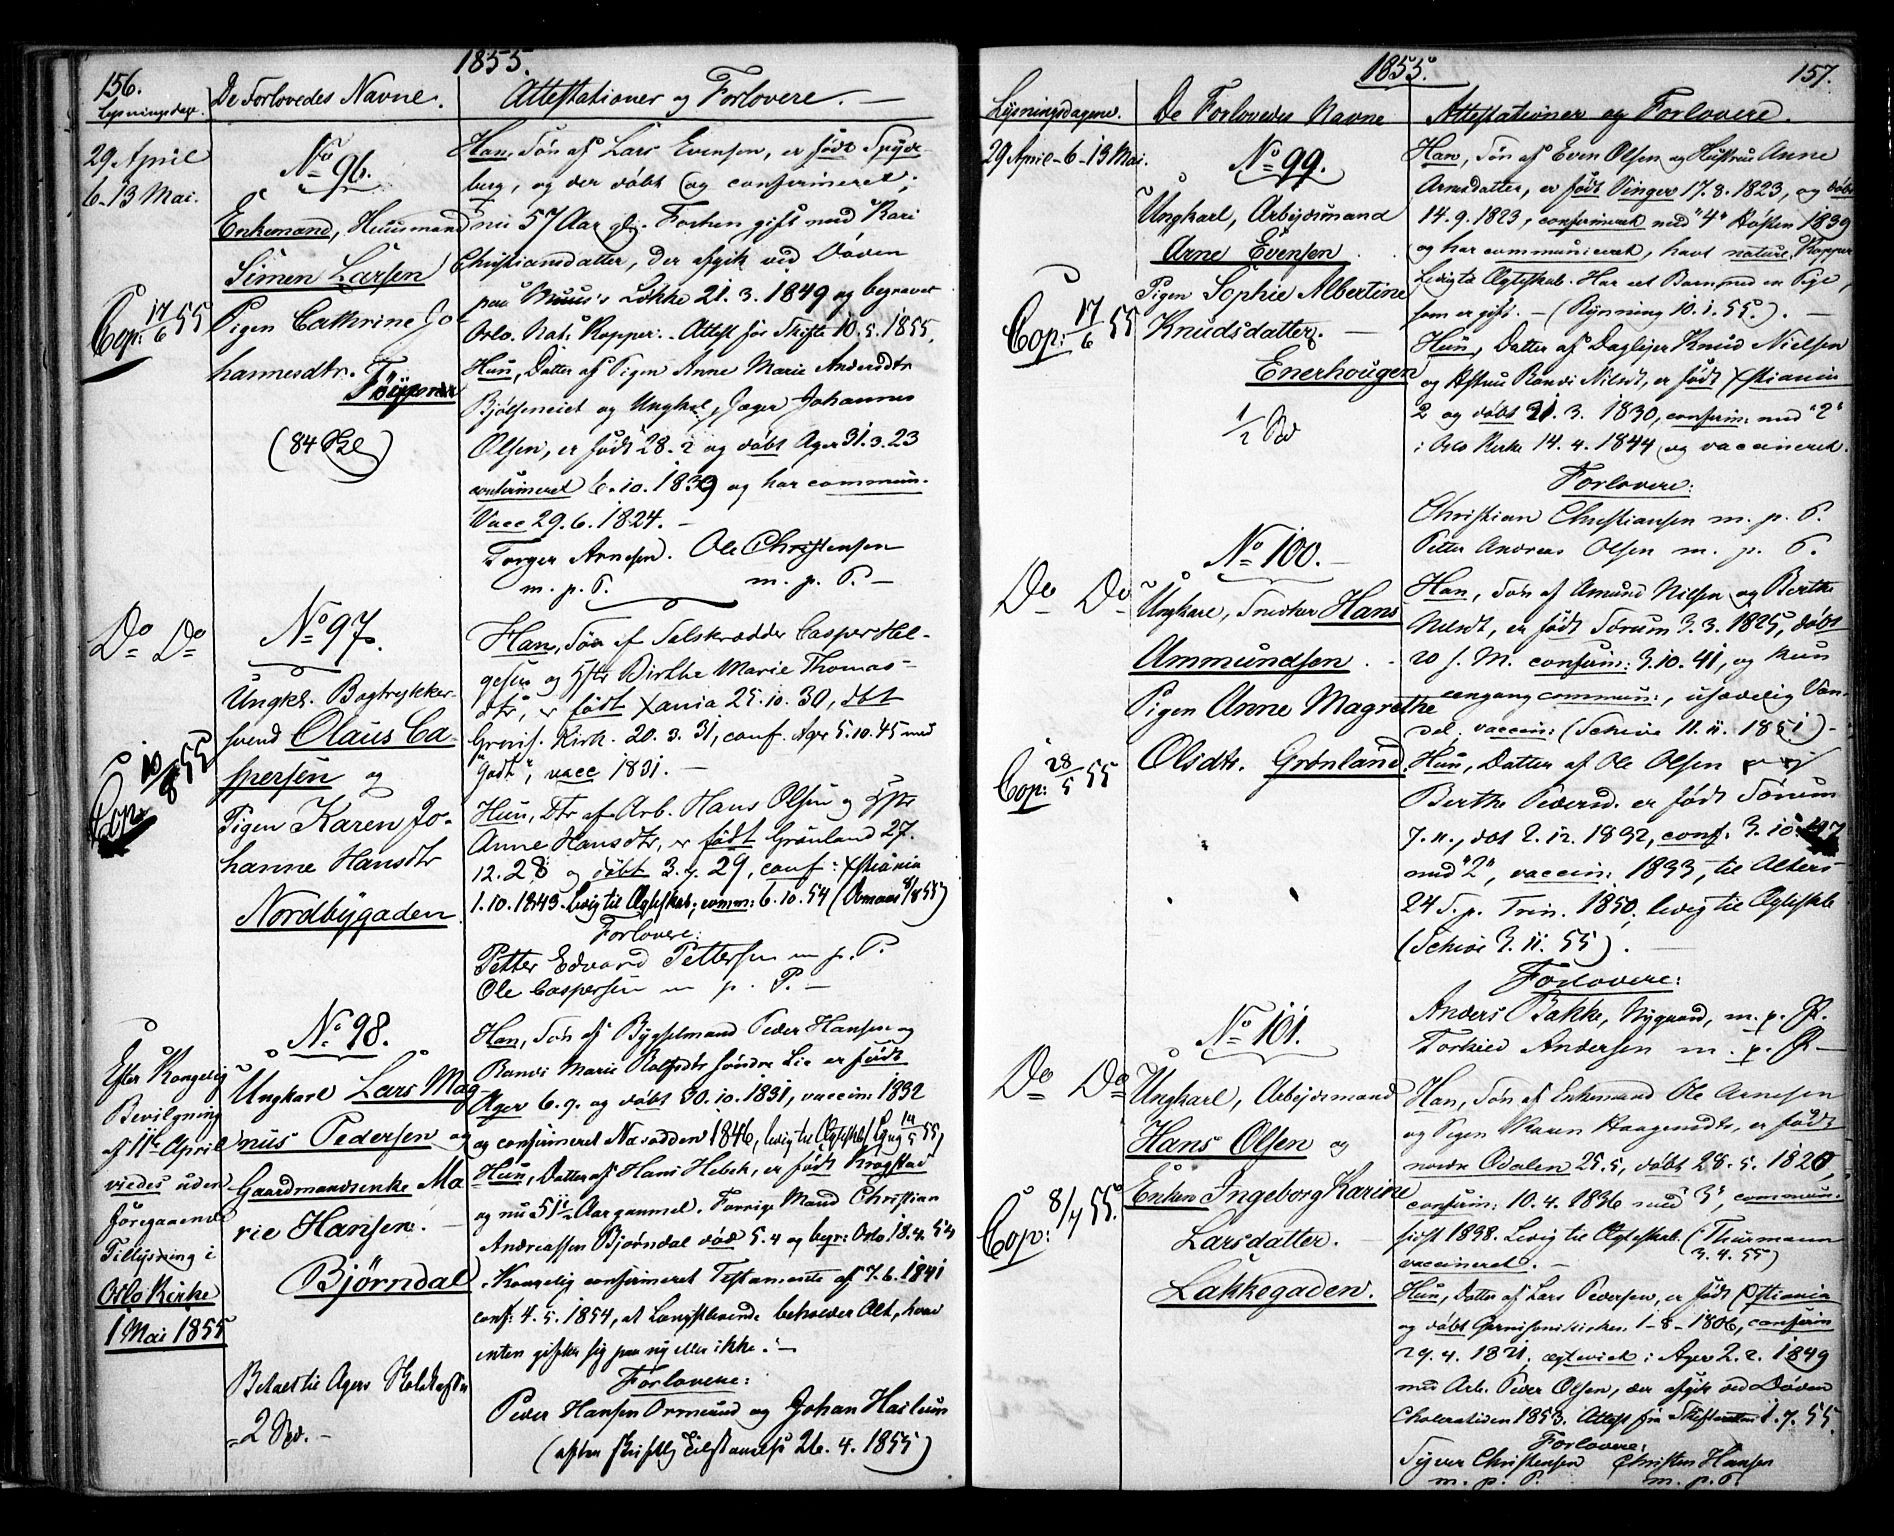 1855.
156.
Lysningsdage. De Forlovedes Navne. Attestationer og Forlovere.
29. April
6. 13 Mai.
No 96.
Enkemand, Huusmand
Simen Larsen
Cop: 17/6 55
Pigen Cathrine Jo-
hannesdtr.
(84 Sk)
Han, Søn af Lars Evensen, er født Spyde-
berg, og der døbt og confirmeret;
nu 57 Aar gl. Forhen gift med Kari
Christiansdatter, der afgik ved Døden
paa Løkke 21. 3. 1849 og begravet
Oslo. Nat: Kopper. Attest for Skifte 10. 5. 1855.
Hun, Datter af Pigen Anne Marie Andersdtr
Bjølseneiet og Ungkl, Jæger Johannes
Olsen, er født 28. 2 og døbt Ager 31. 3. 23
confirmeret 6. 10. 1839 og har commun.
Vacc 29. 6. 1824. —
Torger Arnesen. Ole Christensen
m. p. P. m. p. P. —
Do Do
No 97.
Ungkl. Bogtrykker-
svend Olaus Ca-
spersen og
Pigen Karen Jo-
hanne Hansdtr
Nordbygaden.
Cop. 10/8 55
Han, Søn af Selskrædder Casper Hel-
gesen og Hstr Birthe Marie Thomas-
dtr, er født Xania 25. 10. 30, dbt
Grnis. Kirk. 20. 3. 31, conf. Ager 5. 10. 45 med
"Godt", vacc 1831. —
Hun, Dtr af Arb. Hans Olsen og Hstr
Anne Hansdtr, er født Grønland 27.
12. 28 og døbt 3. 9. 29, conf: Xstiania
1. 10. 1843. ledig til Ægteskab; comm: 6. 10. 54
Forlovere:
Petter Edvard Pettersen m. p. P.
Ole Caspersen m. p. P. —
No 98.
Efter Kongelig
Bevilgning
af 11te April
viedes uden
foregaaende
Tillysning i
Oslo Kirke
1 Mai 1855
Ungkarl Lars Mag-
nus Pedersen og
Gaardmandsenke Ma-
rie Hansen. —
Bjørndal
Betalt til Agers
2 Spd. —
Han, Søn af Bygselmand Peder Hansen og
Randi Marie Rolfsdtr søndre Lie er født
Ager 6. 9. og døbt 30. 10. 1831, vaccin: 1832
og confirmeret Næsodden 1846, ledig til Ægteskab
Hun, Datter af Hans Hebek, er født Kragstad
og nu 51 Aar gammel. Forrige Mand Christian
Andreassen Bjørndal død 5. 4 og begr: Oslo 18. 4. 54
Kongelig confirmeret Testamente af 7. 6. 1841
conf: 4. 5. 1854, at Længstlevende beholder Alt, hvad
enten gifter sig paa ny eller ikke. —
Forlovere:
Peder Hansen Ormsund og Johan Haslum
(efter skriftlig Tilstaaelse 26. 4. 1855)
1855.
157.
Lysningsdagene. De Forlovedes Navne Attestationer og Forlovere.
29 April - 6 - 13 Mai.
No 99.
Ungkarl, Arbejdsmand
Arne Evensen
Pigen Sophie Albertine
Knudsdatter. —
Enerhougen
Cop: 17/6 55
1/2 Sp
Han, Søn af Even Olsen og Hustru Anne
Arnesdatter, er født Vinger 17. 8. 1823, og døbt
14. 9. 1823, confirmeret med "4" Høsten 1839
og har communiceret, havt naturl. Kopper
Ledig til Ægteskab. Har eet Barn med en Pige,
som er gift. — (Rynning 10. 1. 55.). —
Hun, Datter af Daglejer Knud Nielsen
og Hstru Randi Nilsdt, er født Xstiania
2 og døbt 21. 3. 1830, confirm: med "2"
i Oslo Kirke 14. 4. 1844 og vaccineret.
Forlovere:
Christian Christiansen m. p. P.
Petter Andreas Olsen m. p. P.
No 100.
Do Do
Ungkarl, Snedker Hans
Ammundsen
Pigen Anne Magrethe
Olsdtr. Grønland.
Cop: 28/5 55
Han, Søn af Amund Nilsen og Berthe
Nilsdt, er født Sørum 3. 3. 1825, døbt
20 s. M. confirm: 3. 10. 41, og kun
eengang commun:, usædelig Van-
del. vaccin: (Schive 11. 11. 1851). -
Hun, Datter af Ole Olsen og
Berthe Pedersd. er født Sørum
7. 11., døt 2. 12. 1832, conf. 3. 10. 47
med "2", vaccin: 1833, til Alters
24 S. p. Trin. 1850, ledig til Ægteskab
(Schive 3. 11. 55). —
Forlovere:
Anders Bakke, Nygaard, m. p. P.
Torkild Andersen m. p. P.
No 101.
Do Do
Ungkarl, Arbejdsmand
Hans Olsen og
Enken Ingeborg Karine
Larsdatter. —
Lakkegaden.
Cop: 8/7 55.
Han, Søn af Enkemand Ole Arnesen
og Pigen Maren Haagensdtr, er født
nordre Odalen 25. 5, døbt 28. 5. 1820,
confirm: 10. 4. 1836 med "3", commun.
sidst 1838. Ledig til Ægteskab (Thurmann
3. 4. 55)
vaccineret. —
Hun, Datter af Lars Pedersen, er født Xstiania
og døbt Garnisonskirken 1 - 8 - 1806, confirm
29. 4. 1821. ægteviet i Ager 2. 2. 1849
med Arb. Peder Olsen, der afgik ved Døden
Choleratiden 1853. Attest fra Skifteretten 1. 7. 55.
Forlovere:
Syver Christensen Christen Hansen
m. p. P. m. p. P.